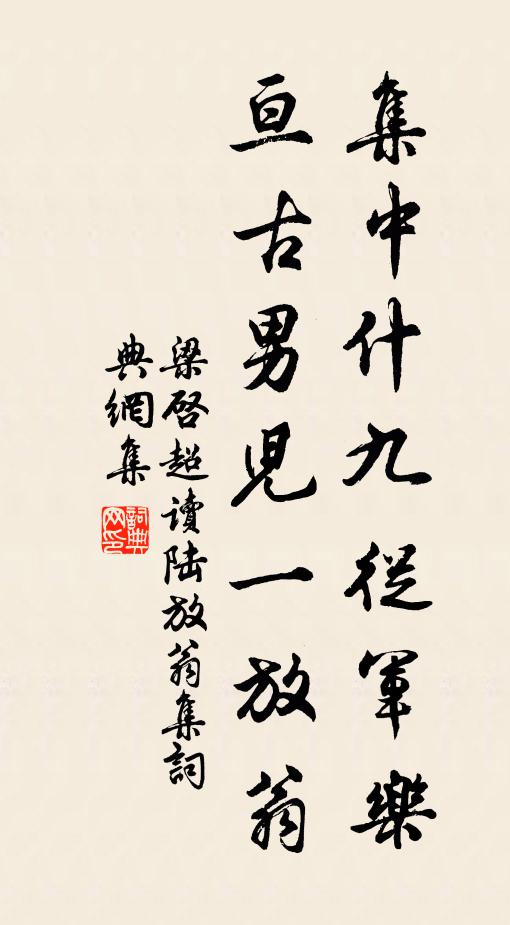 集中什九從軍樂
亘古男兒一放翁
梁啓超讀陸放翁集詞
典網集
詞典
网印